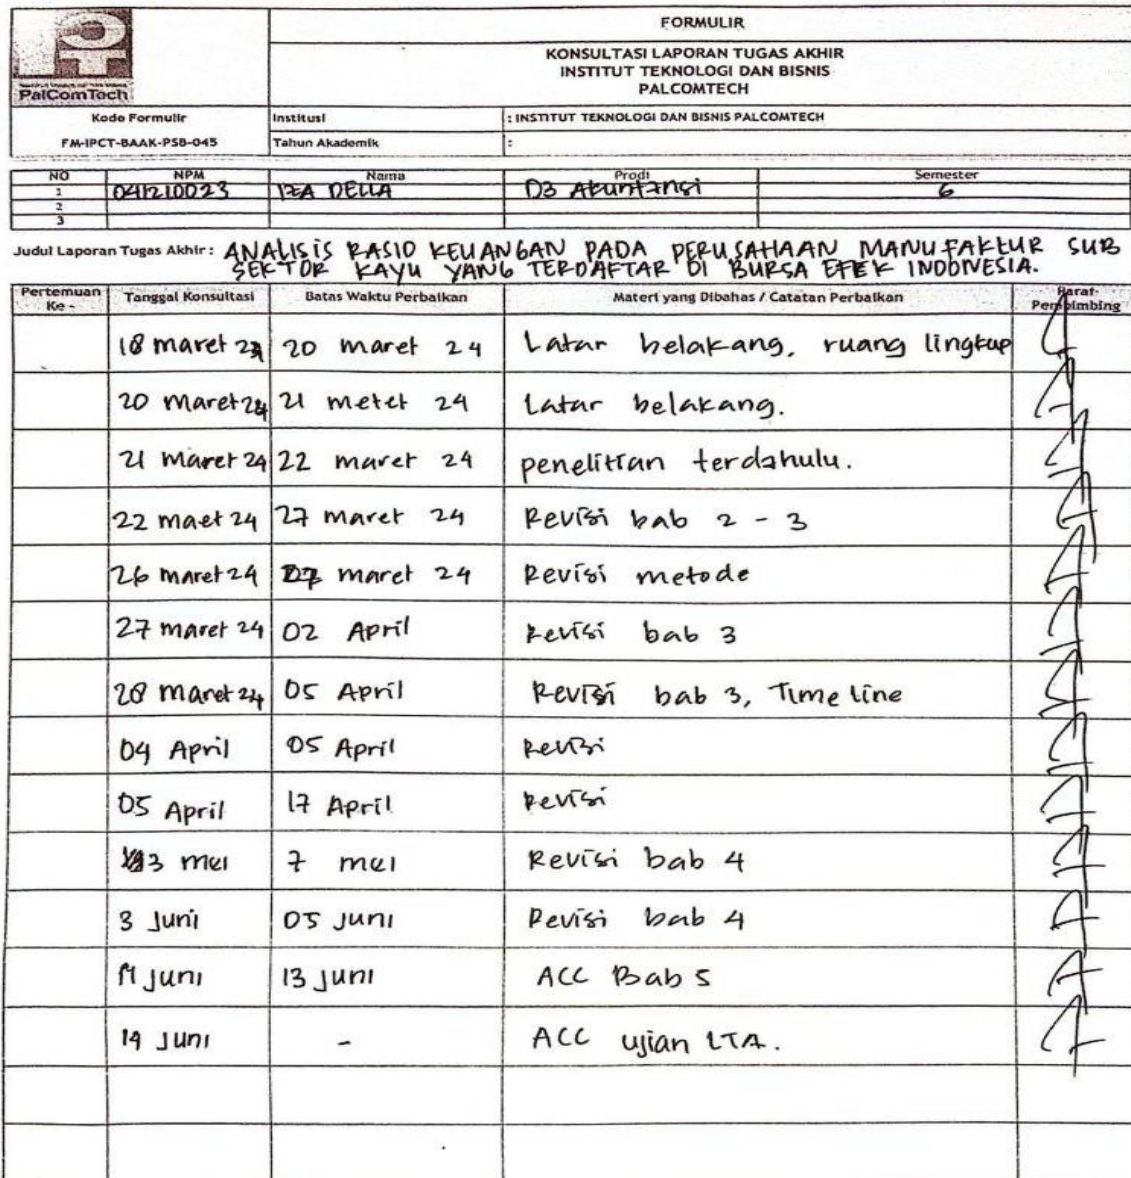 FORMULIR
KONSULTASI LAPORAN TUGAS AKHIR
INSTITUT TEKNOLOGI DAN BISNIS
PALCOMTECH
PalComTech
Kode Formulir
FM-IPCT-BAAK-PSB-045
Institusi : INSTITUT TEKNOLOGI DAN BISNIS PALCOMTECH
Tahun Akademik :
NO NPM Nama Prodi Semester
1 041210023 IZA DELLA D3 Akuntansi 6
2
3
Judul Laporan Tugas Akhir : ANALISIS RASIO KEUANGAN PADA PERUSAHAAN MANUFAKTUR SUB
SEKTOR KAYU YANG TERDAFTAR DI BURSA EFEK INDONESIA.
Pertemuan Ke - Tanggal Konsultasi Batas Waktu Perbaikan Materi yang Dibahas / Catatan Perbaikan Paraf Pembimbing
18 maret 24 20 maret 24 Latar belakang, ruang lingkup
20 maret 24 21 metet 24 Latar belakang.
21 maret 24 22 maret 24 penelitian terdahulu.
22 maet 24 27 maret 24 Revisi bab 2 - 3
26 maret 24 27 maret 24 Revisi metode
27 maret 24 02 April Revisi bab 3
28 maret 24 05 April Revisi bab 3, Time line
04 April 05 April Revisi
05 April 17 April Revisi
3 mei 7 mei Revisi bab 4
3 Juni 05 juni Revisi bab 4
11 juni 13 juni ACC Bab 5
14 juni - ACC ujian LTA.